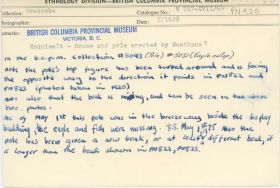 ETHNOLOGY DIVISION—BRITISH COLUMBIA PROVINCIAL MUSEUM
Catalogue No.
PN 520
7/1928
BRITISH COLUMBIA PROVINCIAL MUSEUM
VICTORIA, B. C.
Esquimalt - House and pole erected by
In the B.C.P.M. collection (Pole)
Note the pole's top figure has been turned around and is facing
the opposite way to the direction it points in PN823 and
PN822
note also that the beak is missing, and can be seen in the above
two photos.
As of May 1st this pole was in the breezeway beside the display
building, the eagle and fish were missing. May 1st 75 Also the
pole has been given a new beak, or at least different beak, it
is longer than the beak shown in PN822, PN823.